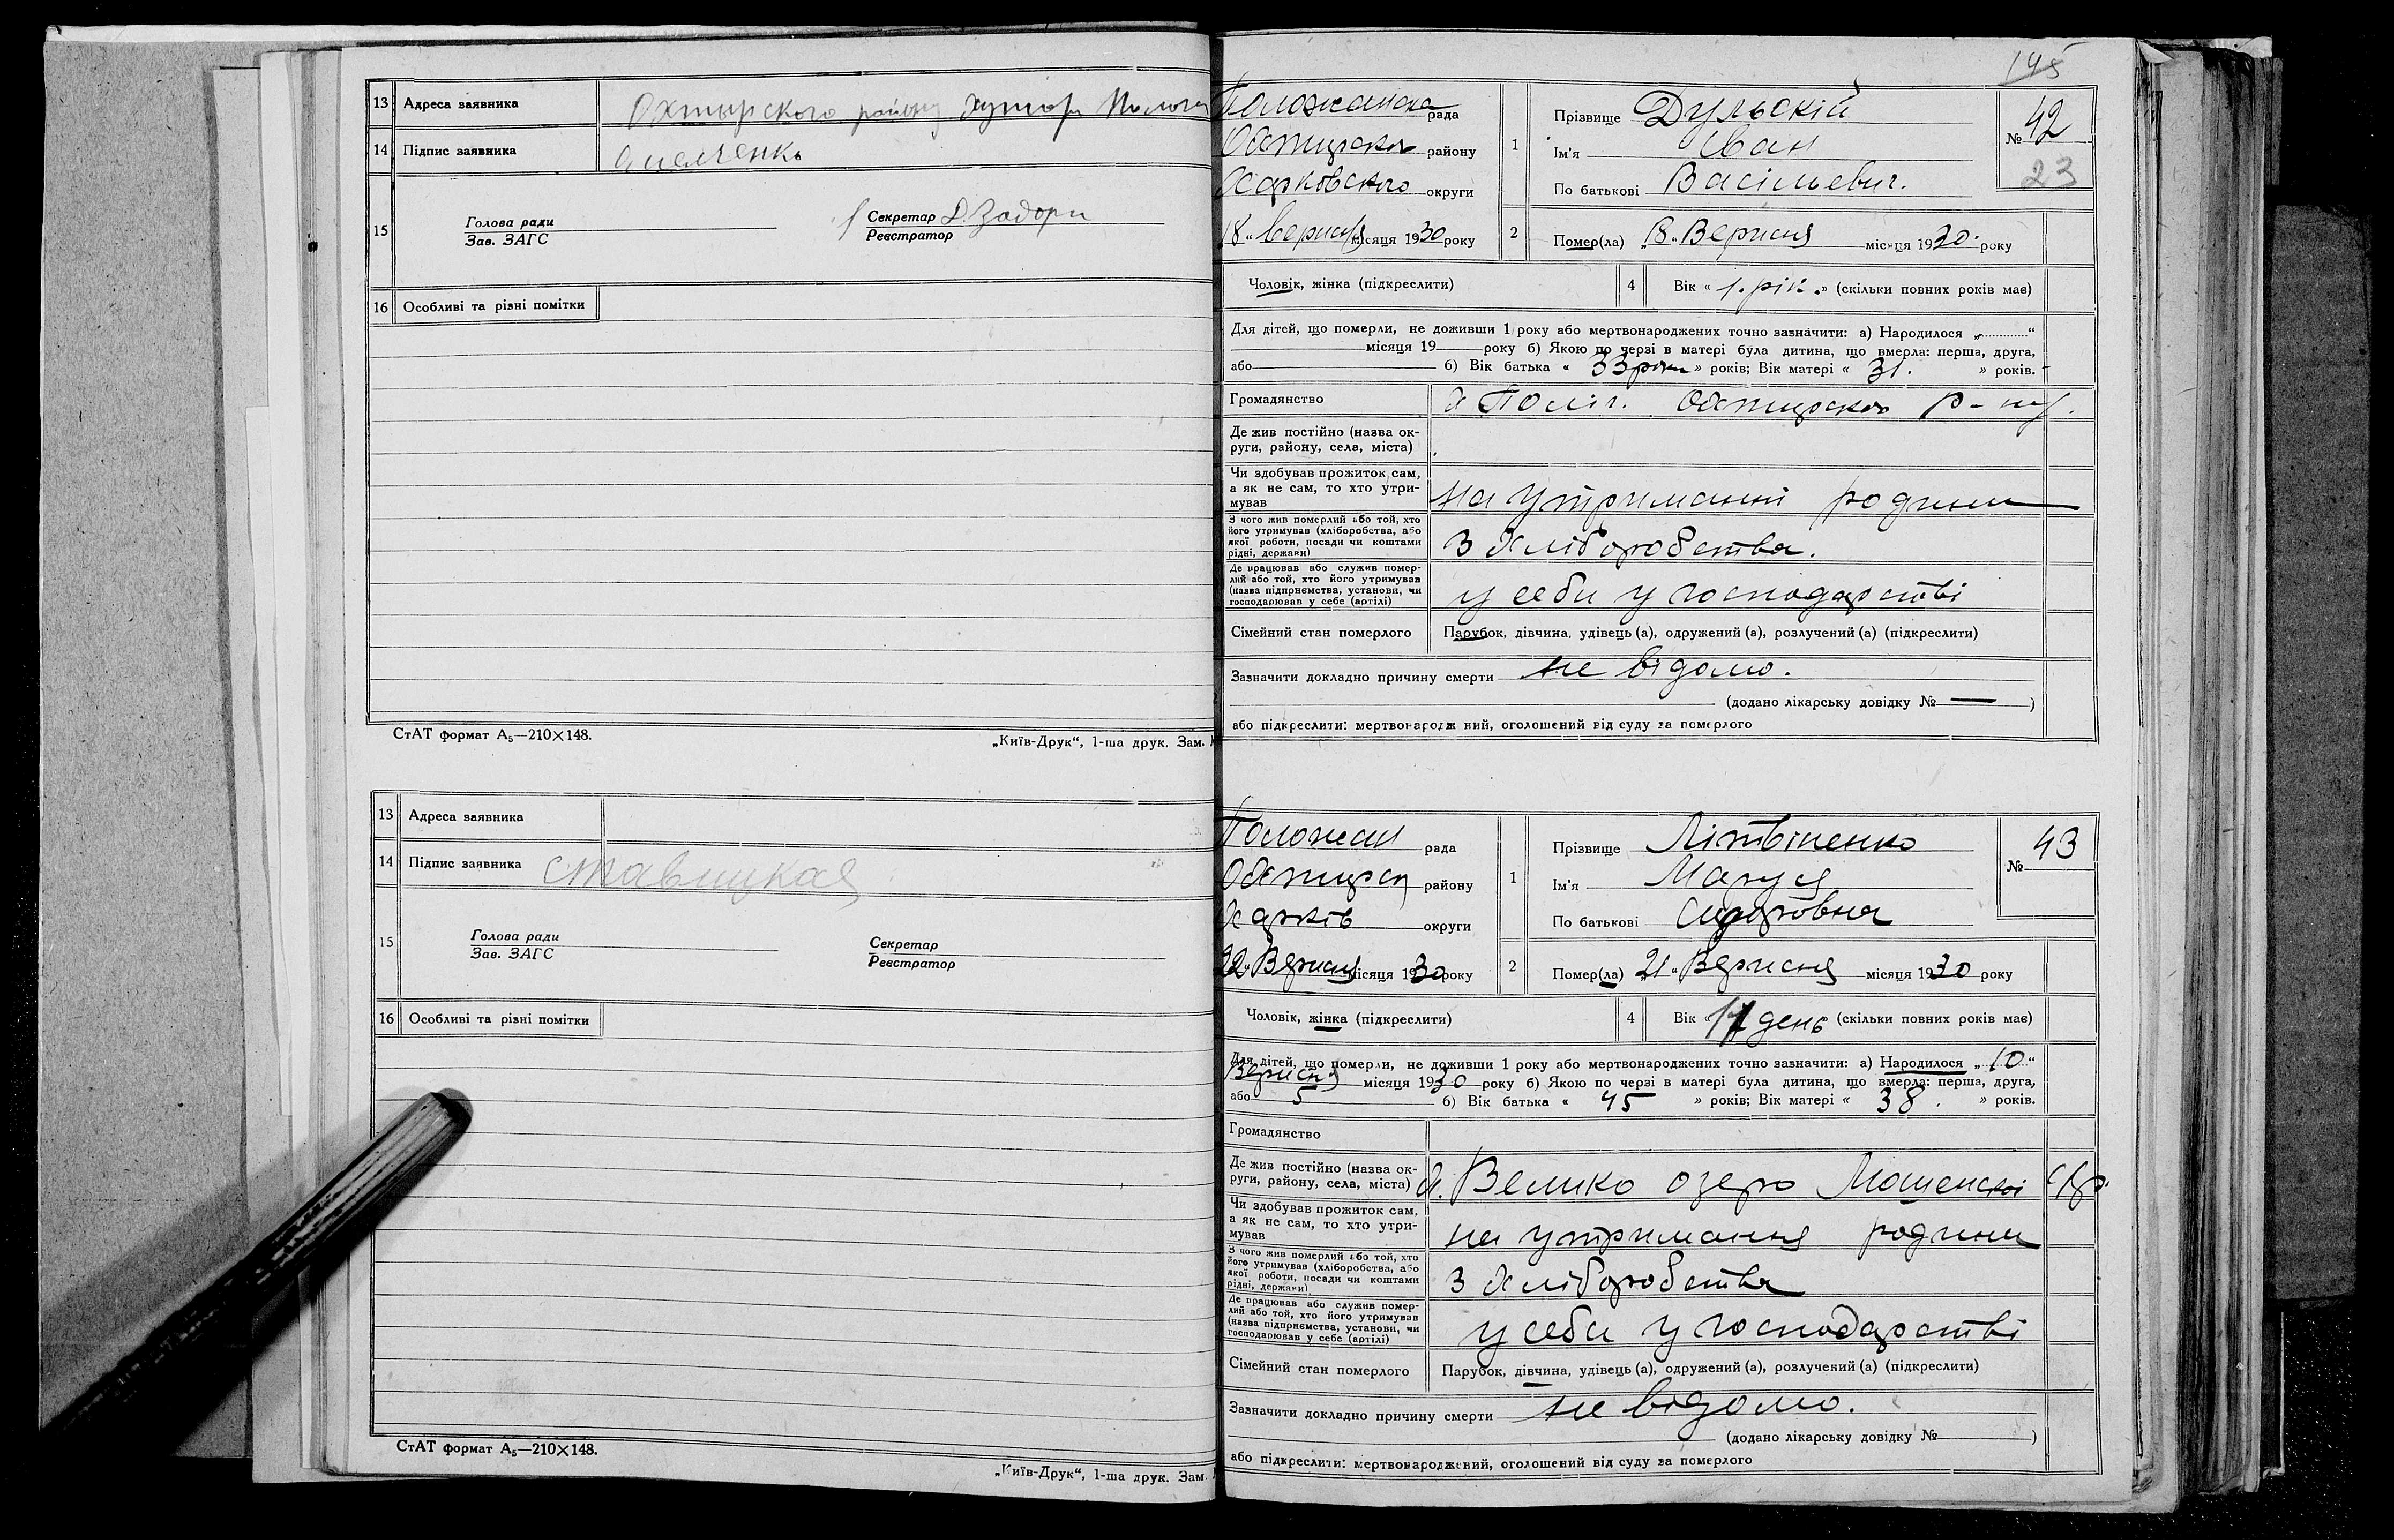 13 Адреса заявника Охтырского району хутора
14 Підпис заявника Омелченкь
15 Голова ради Секретар Д. Задорн
Зав. ЗАГС Реєстратор
16 Особливі та різні помітки
СтАТ формат А5—210×148.
„Київ-Друк“, 1-ша друк. Зам.
13 Адреса заявника
14 Підпис заявника Ставицкая
15 Голова ради Секретар
Зав. ЗАГС Реєстратор
16 Особливі та різні помітки
СтАТ формат А5—210×148.
„Київ-Друк“, 1-ша друк. Зам.
145
рада
району
Харковского округи
18 „ Вересня місяця 1930 року
1 Прізвище Дульскій
Ім'я Іван
По батькові Васільевич.
№ 42
23
2 Помер(ла) „18 „ Вересня місяця 1930. року
Чоловік, жінка (підкреслити) 4 Вік « 1. рік. » (скільки повних років має)
Для дітей, що померли, не доживши 1 року або мертвонароджених точно зазначити: а) Народилося „ “
місяця 19 року б) Якою по черзі в матері була дитина, що вмерла: перша, друга,
або б) Вік батька « 33 роки » років; Вік матері « 31. » років.
Громадянство х Полог. Охтирского р-ну.
Де жив постійно (назва ок-
руги, району, села, міста)
Чи здобував прожиток сам,
а як не сам, то хто утри-
мував на утриманні родини
З чого жив померлий або той, хто
його утримував (хліборобства, або
якої роботи, посади чи коштами
рідні, держави) З хліборобства.
Де працював або служив помер-
лий або той, хто його утримував
(назва підприємства, установи, чи
господарював у себе (артілі) у себи у господарстві
Сімейний стан померлого Парубок, дівчина, удівець (а), одружений (а), розлучений (а) (підкреслити)
Зазначити докладно причину смерти не відомо.
(додано лікарську довідку № — )
або підкреслити: мертвонароджений, оголошений від суду за померлого
рада
району
Харків округи
22 „ Вересня місяця 1930 року
1 Прізвище Літвіненко
Ім'я Маруся
По батькові Сидоровна
№ 43
2 Помер(ла) 21 „ Вересня місяця 1930 року
Чоловік, жінка (підкреслити) 4 Вік « 11 день (скільки повних років має)
Для дітей, що померли, не доживши 1 року або мертвонароджених точно зазначити: а) Народилося „ 10 “
Вересня місяця 1930 року б) Якою по черзі в матері була дитина, що вмерла: перша, друга,
або 5 б) Вік батька « 45 » років; Вік матері « 38. » років.
Громадянство
Де жив постійно (назва ок-
руги, району, села, міста) х. Велико озеро Мошенскої с/р.
Чи здобував прожиток сам,
а як не сам, то хто утри-
мував на утримання родини
З чого жив померлий або той, хто
його утримував (хліборобства, або
якої роботи, посади чи коштами
рідні, держави) З хліборобства
Де працював або служив помер-
лий або той, хто його утримував
(назва підприємства, установи, чи
господарював у себе (артілі) у себи у господарстві
Сімейний стан померлого Парубок, дівчина, удівець (а), одружений (а), розлучений (а) (підкреслити)
Зазначити докладно причину смерти не відомо.
(додано лікарську довідку № )
або підкреслити: мертвонароджений, оголошений від суду за померлого